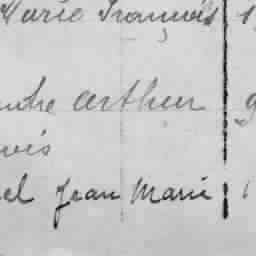 Marie François 1
andre arthur 9
uis
el Jean Marie 1